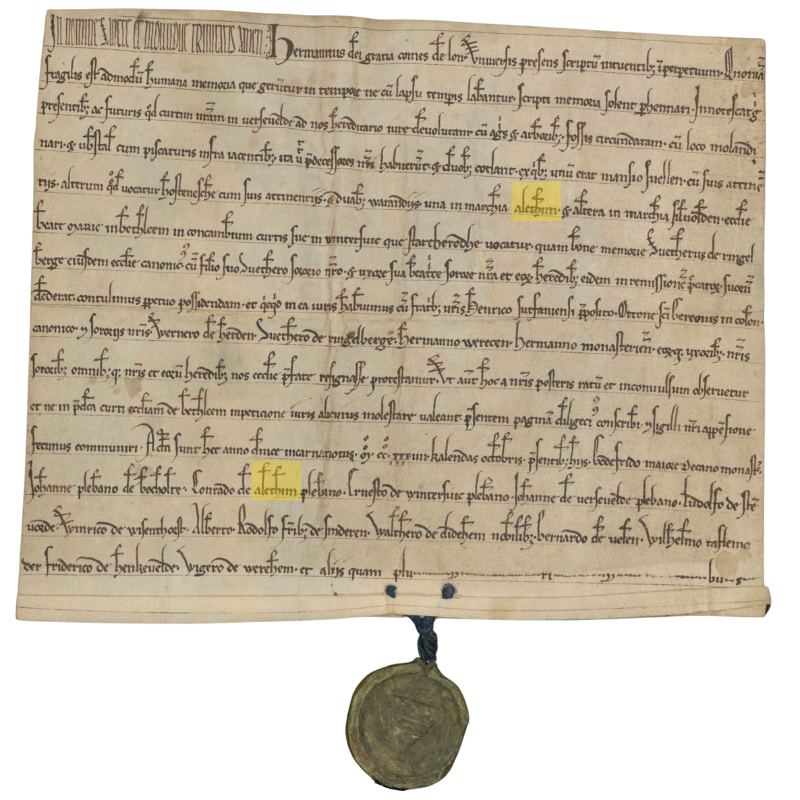 In nomine sancte et individue trinitatis amen. Hermannus dei gratia comes de lon. Vniversis presens scriptū inventib; īperpetuum. Qnoniā
fragilis est admodū humana memoria que gerūtur in tempore ne cū lapsu tempis labantur scripti memoria solent phennari. Innotescat gͥ
presentib; ac futuris qd curtim nrām in verseuelde ad nos hereditario iure devolutam cū agris & arborib; fossis circundatam. cū loco molandi
nari. & ubstal cum piscaturis infra iacentib; ita ut pdecessores nrī habuerūt. & duob; cotlant. ex qb; unū erat mansio suellen. cū suis attinē
tijs. alterum qd vocatur hostenesche cum suis attinentijs. & duab; warandijs. una in marchia alethim. & altera in marchia siluolden. ecclie
beate marie in bethleem in concambium curtis sue in wintersuic que starcherodhe vocatur. quam bone memorie Suetherus de ringel
berge eiusdem ecclie canonicꝰ cū filio suo Suethero sororio nro. & uxore sua beatrice sorore nrā et eoꝝ heredib; eidem in remissionē pcatoꝝ suoꝝ
dederat. contulimus ppetuo possidendam. et qcqd in ea iuris habuimus cū fratrib; nrīs Henrico suesaciensi pposito. Ottone scī Gereonis in colon.
canonico. & sororijs nrīs. Wernero de herden. Suethero de ringelberge. hermanno werecen. hermanno monasterien. eorꝗ; uxorib; nrīs
sororib; omnib; q; nrīs et eorū heredib; nos ecclie pfate resignasse protestamur. Vt aūt hoc a nrīs posteris ratū et inconvulsum observetur
et ne in pdcā curti eccliam de bethleem inpeticione iuris alicuius molestare valeant. psentem paginā diligēti conscribi & sigilli nrī appēsione
fecimus communiri. Acta sunt hec anno dnice incarnacionis. mͦ. ccͦ. xxxiiii. kalendas octobris. psentib; hijs. Godefrido maioꝝ decano monast.
Johanne plebano de bocholte. Conrado de alethim plebano. Ernesto de wintersuic plebano. Johanne de verseuelde plebano. ludolfo de stē
uorde. Winrico de wisenthorst. Alberto. Rodolfo frīb; de smideren. Walthero de didehem nobilib; bernardo de velen. Wilhelmo tasteno
ver friderico de henkeuelde. Wigero de werehem. et alijs quam plurimis